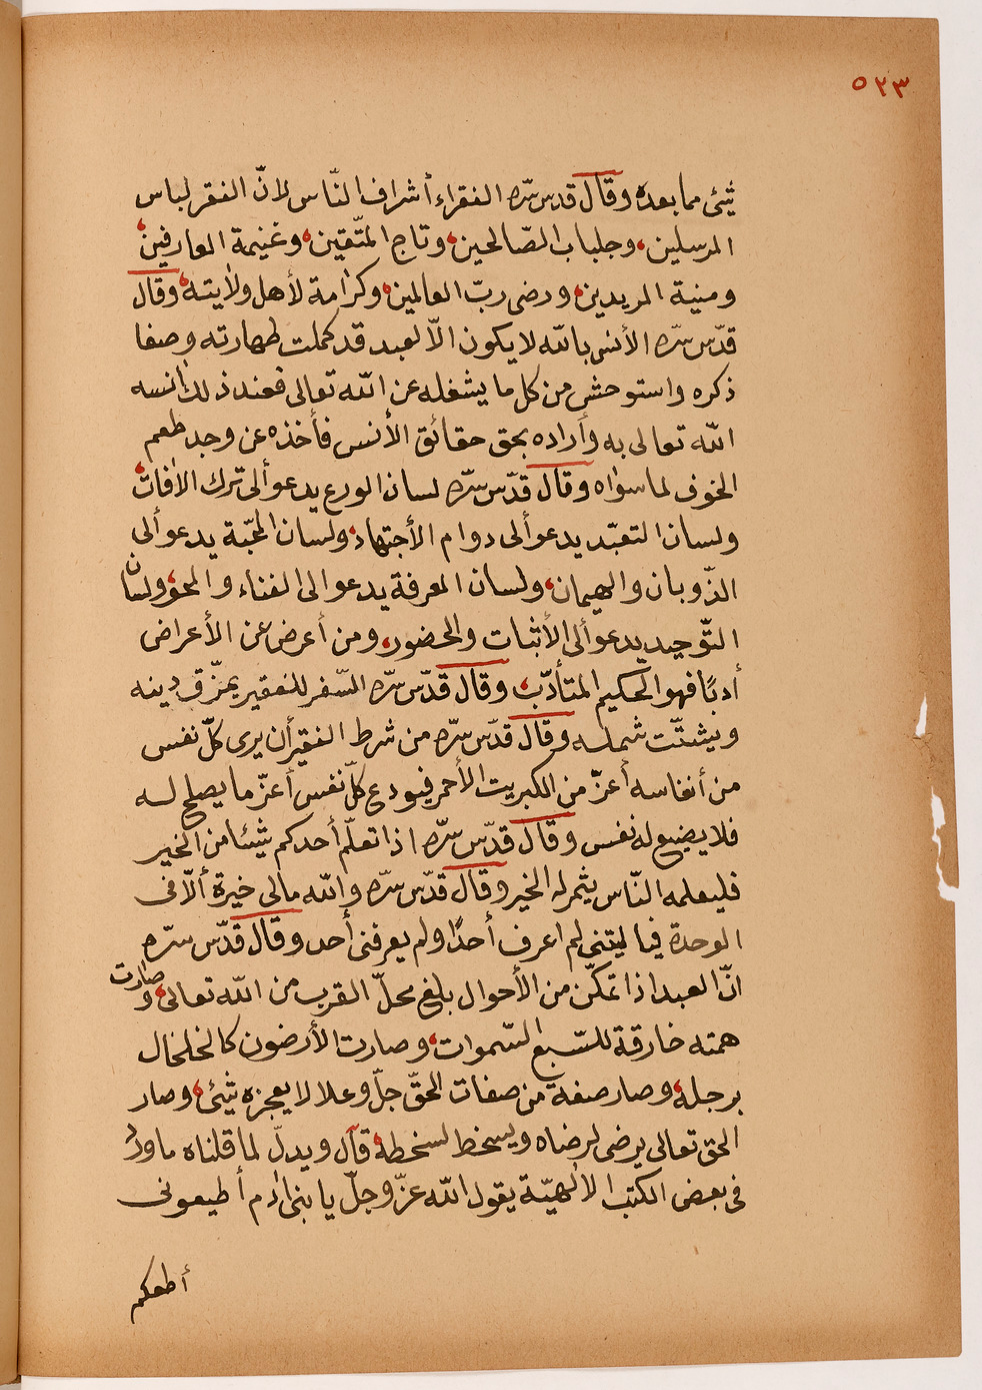 ٥٢٣
شئ مما بعده وقال قدس سّره الفقراء أشراف النّاس لانّ الفقر لباس
المرسلين، وجلباب الصّالحين، وتاج المتّقين، وغنيمة العارفين،
ومنية المريدين، ورضى ربّ العالمين، وكرامة لأهل ولايته، وقال
قدّس سّره الأنس بالله لا يكون الّا لعبد قد كملت طهارته وصفا
ذكره واستوحش من كل ما يشغله عن الله تعالى فعند ذلك انسه
الله تعالى به وأراده بحق حقائق الأنس فأخذه عن وجد طعم
الخوف لما سواه وقال قدّس سّره لسان الورع يدعو ألى ترك الآفات،
ولسان التعبّد يدعو ألى دوام الأجتهاد، ولسان المحبّة يدعو ألى
الذّوبان والهيمان، ولسان المعرفة يدعو الى الفناء والمحو، ولسان
التّوحيد يدعو ألى الأثبات والحضور، ومن أعرض عن الأعراض
أدبًا فهو الحكيم المتأدّب، وقال قدّس سّره السّفر للفقير يمزّق دينه
ويشتّت شمله وقال قدّس سّره من شرط الفقير أن يرى كلّ نفس
من أنفاسه أعزّ من الكبريت الأحمر فيودع كلّ نفس أعزّ ما يصلح له
فلا يضيع له نفس وقال قدّس سّره اذا تعلّم أحدكم شيئا من الخير
فليعلمه النّاس يثمر له الخير وقال قدّس سّره والله مالى خيرة ألّا فى
الوحدة فيا ليتنى لم اعرف أحدًا ولم يعرفنى أحد وقال قدّس سّره
انّ العبد اذا تمكّن من الأحوال بلغ محلّ القرب من الله تعالى، وصارت
همته خارقة للسّبع السّموات، وصارت الأرضون كالخلخال
برجله، وصار صفة من صفات الحقّ جلّ وعلا لا يعجزه شئ، وصار
الحق تعالى يرضى لرضاه ويسخط لسخطه، قال ويدلّ لما قلناه ما ورد
فى بعض الكتب الالهيّة يقول الله عزّ وجلّ يا بنى ادم أطيعونى
أطعكم